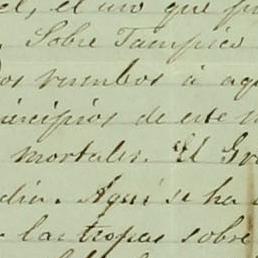 el, el uno que fu
Sobre Tampico
os rumbos á aqu
incipios de este m
mortales. El Gr
dia. Aquí se ha
las tropas sobre